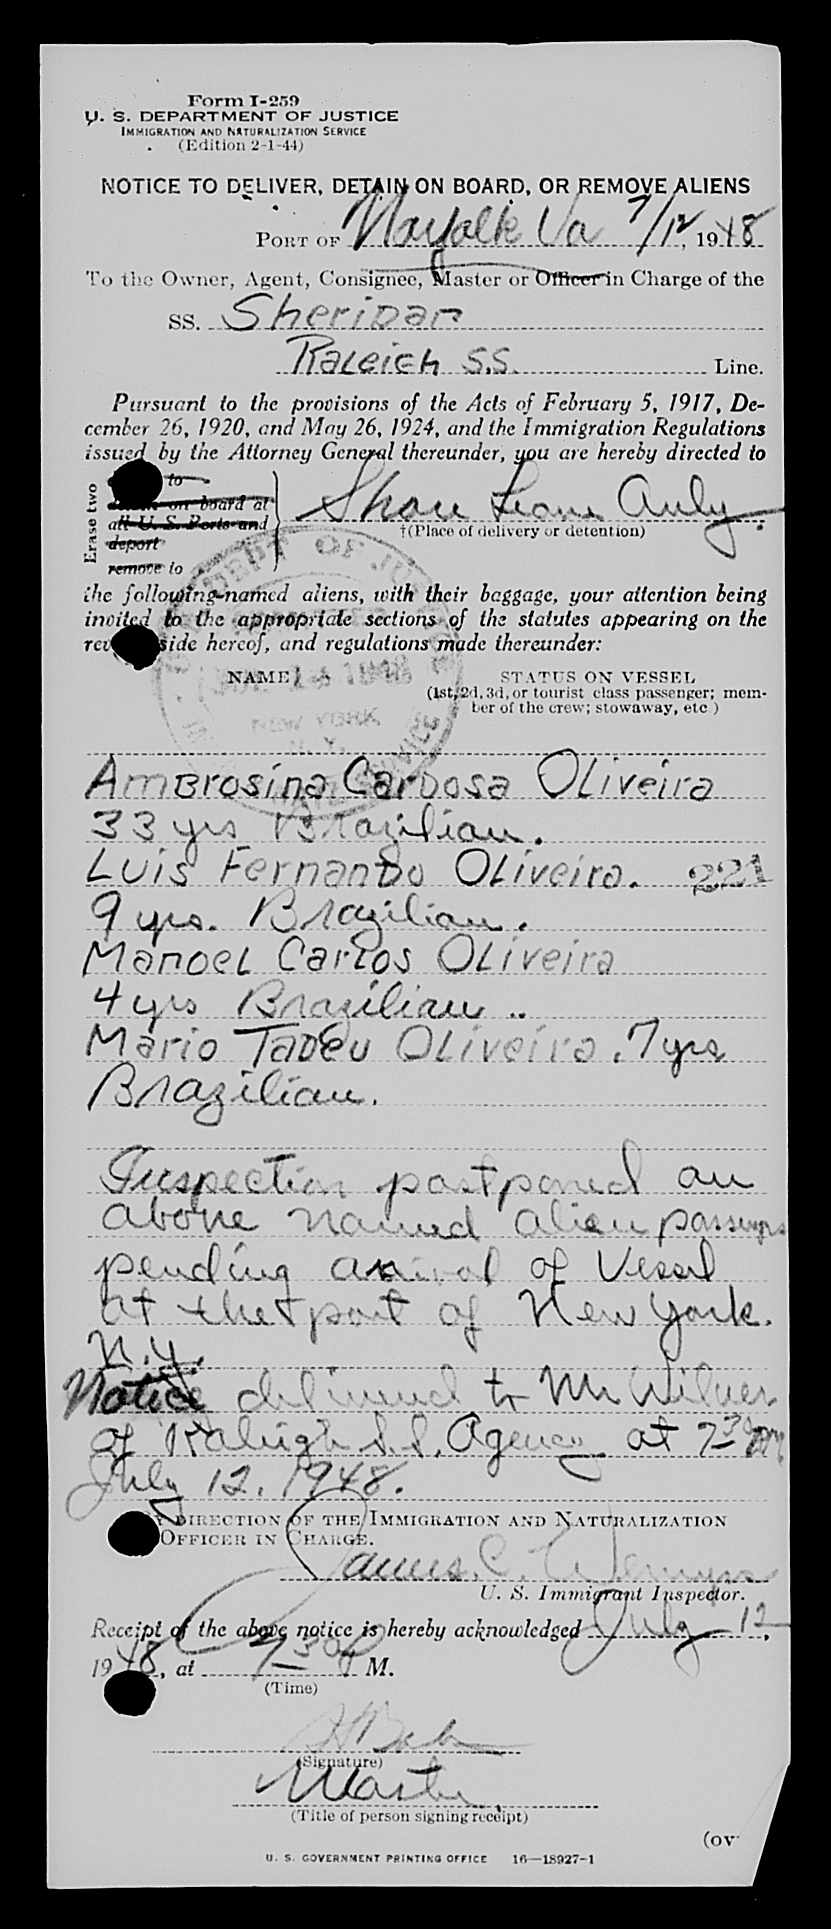 Form I-259
U. S. DEPARTMENT OF JUSTICE
IMMIGRATION AND NATURALIZATION SERVICE
(Edition 2-1-44)
NOTICE TO DELIVER, DETAIN ON BOARD, OR REMOVE ALIENS
PORT OF Norfolk Va 7/12, 1948
To the Owner, Agent, Consignee, Master or Officer in Charge of the
SS. Sheridan
Raleigh S.S. Line.
Pursuant to the provisions of the Acts of February 5, 1917, De-
cember 26, 1920, and May 26, 1924, and the Immigration Regulations
issued by the Attorney General thereunder, you are hereby directed to
Erase two
to
on board at
all U. S. Ports and
deport
remove to
Shore Leave Only.
†(Place of delivery or detention)
the following-named aliens, with their baggage, your attention being
invited to the appropriate sections of the statutes appearing on the
side hereof, and regulations made thereunder:
DEPT OF JUSTICE
1948
NEW YORK
N.Y.
NAME
STATUS ON VESSEL
(1st, 2d, 3d, or tourist class passenger; mem-
ber of the crew; stowaway, etc.)
Ambrosina Cardosa Oliveira
33 yrs Brazilian.
Luis Fernando Oliveira. 221
9 yrs. Brazilian.
Manoel Carlos Oliveira
4 yrs Brazilian ..
Mario Tadeu Oliveira. 7 yrs
Brazilian.
Inspection postponed on
above named alien passengers
pending arrival of Vessel
at the port of New York.
N.Y.
Notice delivered to Mr
of Raleigh S.S. Agency at 7 30 PM
July 12, 1948.
BY DIRECTION OF THE IMMIGRATION AND NATURALIZATION
OFFICER IN CHARGE.
James C.
U. S. Immigrant Inspector.
Receipt of the above notice is hereby acknowledged July 12,
1948, at 7 30 P M.
(Time)
(Signature)
Master
(Title of person signing receipt)
(ov
U. S. GOVERNMENT PRINTING OFFICE 16—18927-1